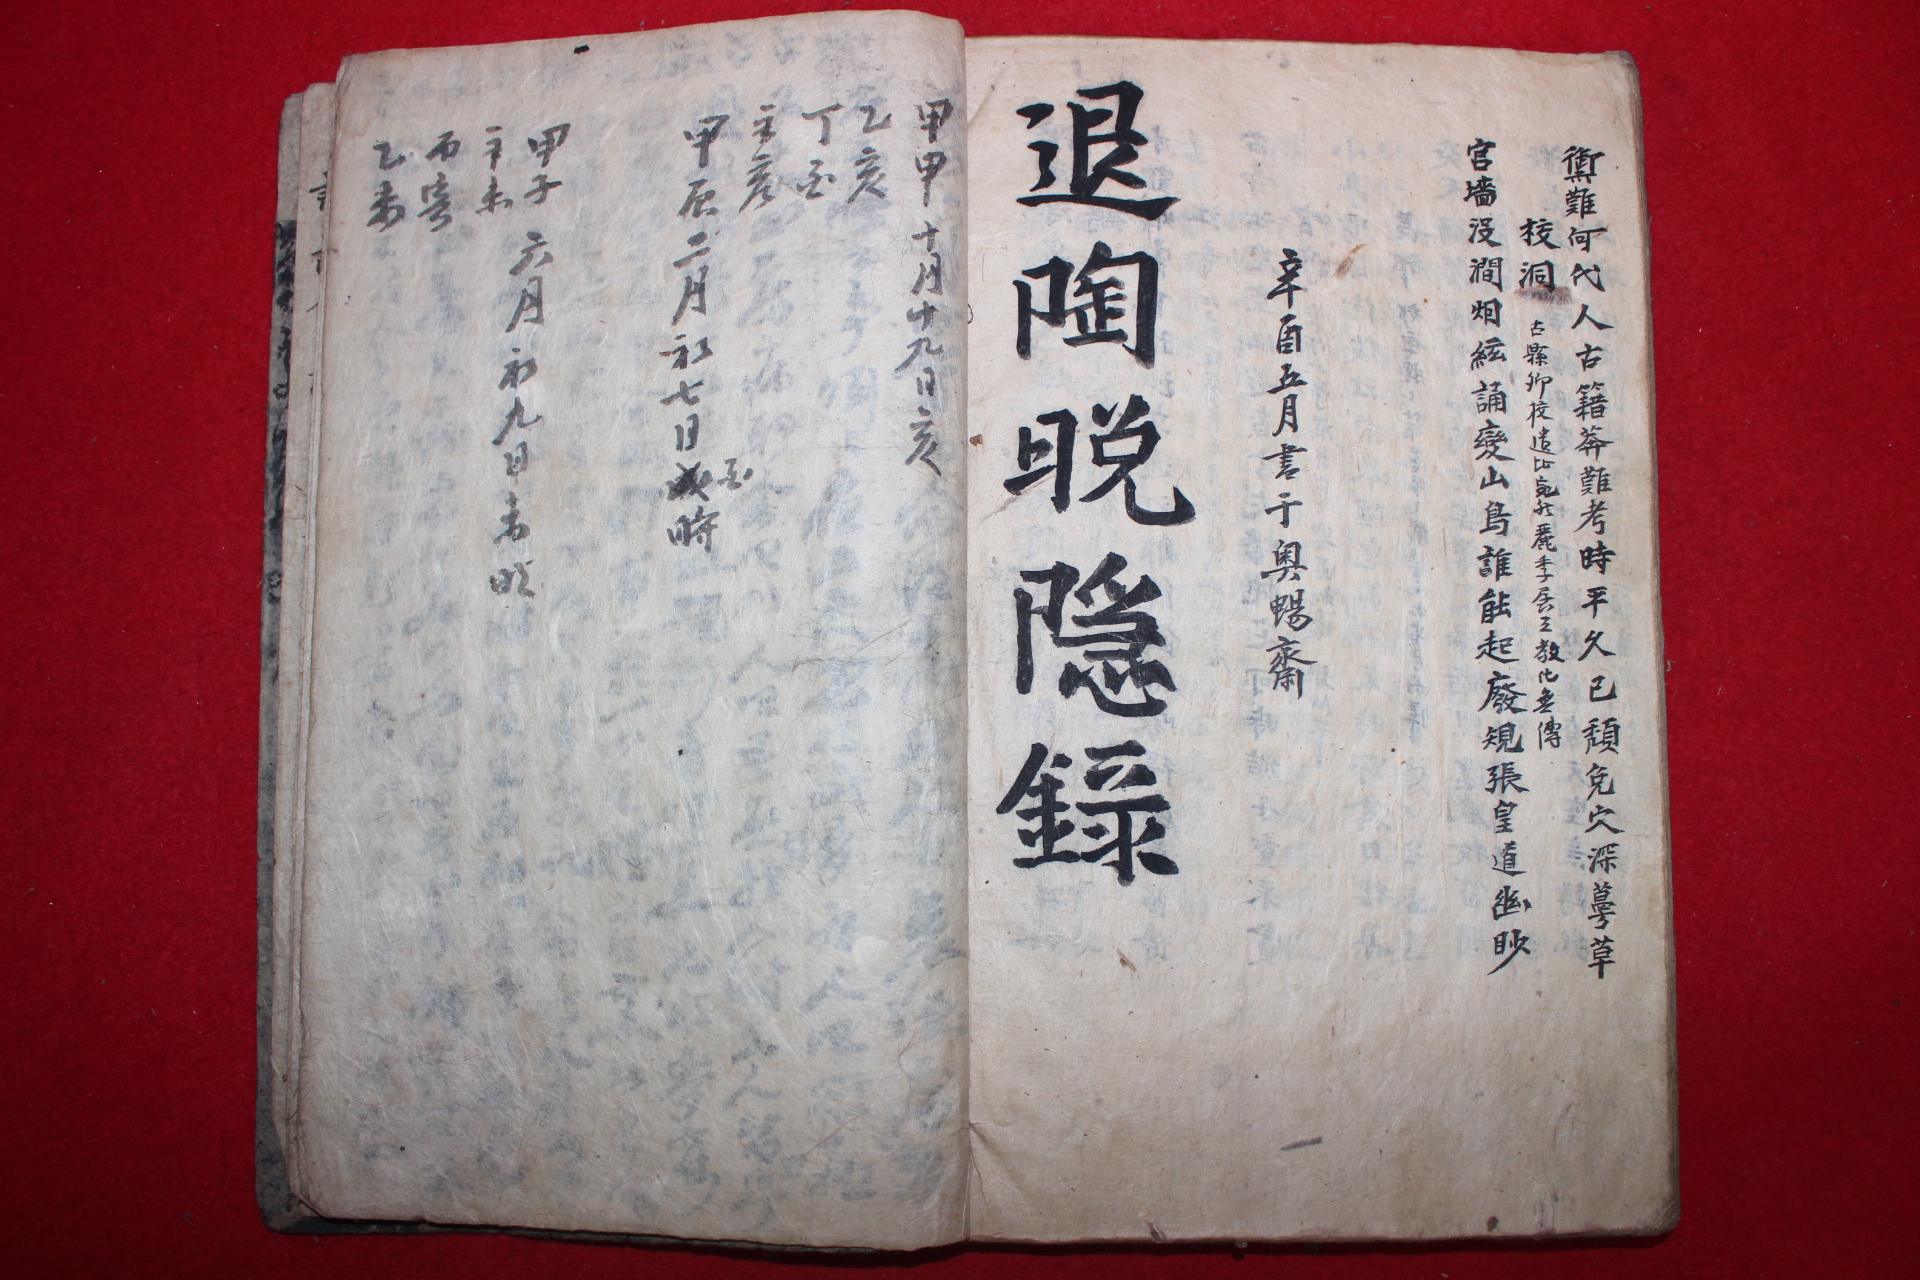 禦難何代人古籍莽難考時平久已頹兔穴深蔓草
校洞 古縣鄉校遺址宛然麗季居王教化無傳
宮墻沒澗烟絃誦變山鳥誰能起廢規張皇道幽眇
辛酉五月書于奧暢齋
退陶晩隐錄
甲申 十月十九日亥
乙亥
丁
甲辰 二月初七日戌時
甲子 六月初九日
辛未
丙寅
乙未